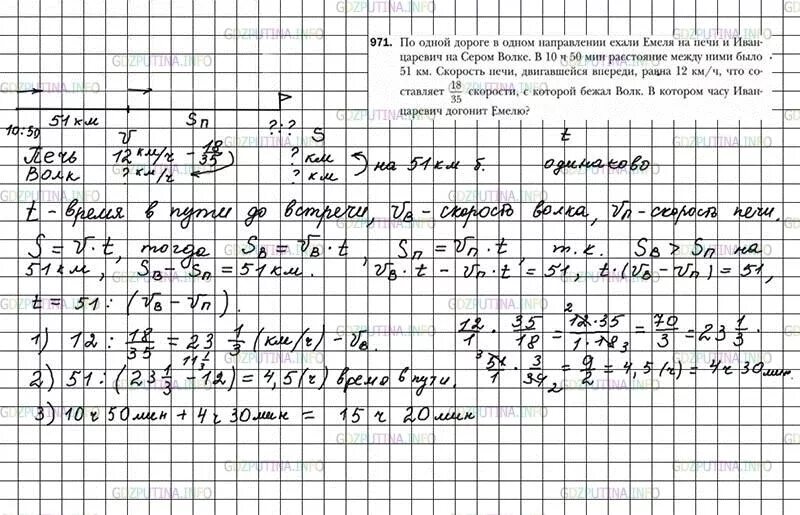 971. По одной дороге в одном направлении ехали Емеля на печи и Иван-
царевич на Сером Волке. В 10 ч 50 мин расстояние между ними было
51 км. Скорость печи, двигавшейся впереди, равна 12 км/ч, что со-
ставляет 18/35 скорости, с которой бежал Волк. В котором часу Иван-
царевич догонит Емелю?
51 км Sп
10:50 ???
V S t
Печь 12 км/ч - 18/35 ? км на 51 км б. одинаково
Волк ? км/ч ? км
t - время в пути до встречи, Vв - скорость волка, Vп - скорость печи.
S = V · t, тогда Sв = Vв · t, Sп = Vп · t, т.к. Sв > Sп на
51 км, Sв - Sп = 51 км. Vв · t - Vп · t = 51, t · (Vв - Vп) = 51,
t = 51 : (Vв - Vп).
1) 12 : 18/35 = 23 1/3 (км/ч) - Vв. 12/1 · 35/18 = 12·35/1·18 = 70/3 = 23 1/3.
11 1/3
2) 51 : (23 1/3 - 12) = 4,5 (ч) время в пути. 51/1 · 3/34 = 9/2 = 4,5 (ч) = 4 ч 30 мин.
3) 10 ч 50 мин + 4 ч 30 мин = 15 ч 20 мин
GDZPUTINA.INFO